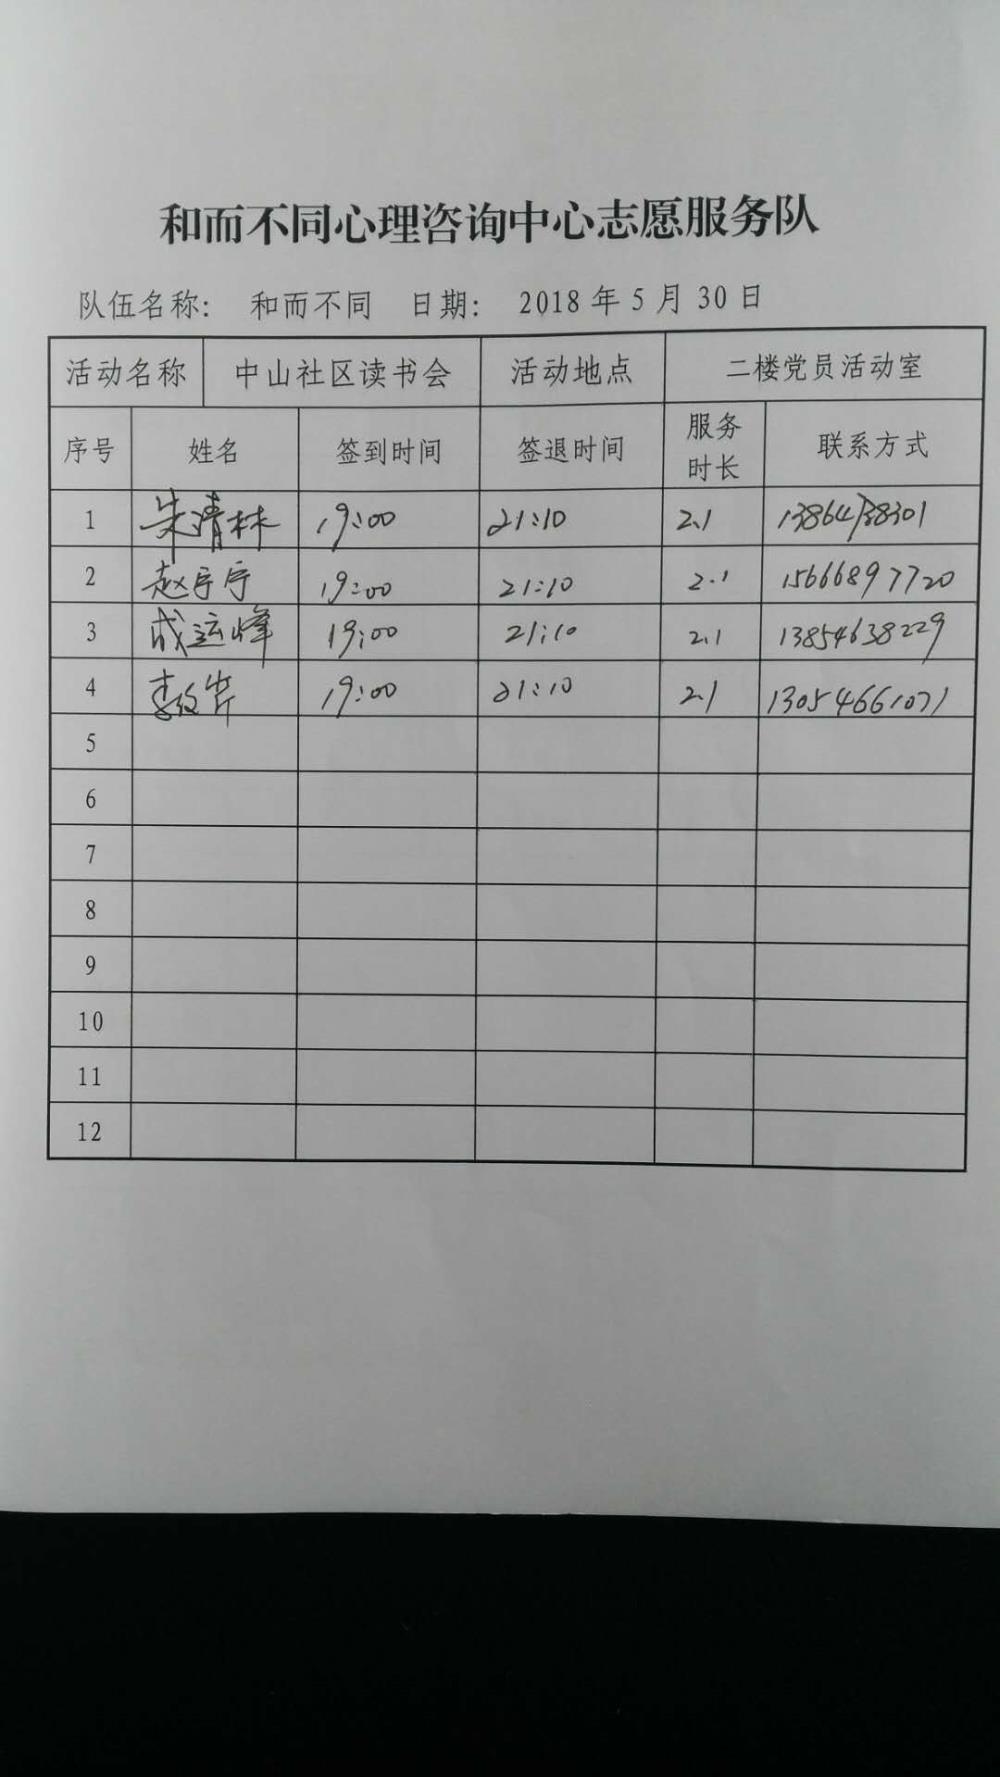 和而不同心理咨询中心志愿服务队
队伍名称： 和而不同 日期： 2018 年 5 月 30 日
活动名称 中山社区读书会 活动地点 二楼党员活动室
序号 姓名 签到时间 签退时间 服务时长 联系方式
1 朱清林 19:00 21:10 2.1
2 赵宇宇 19:00 21:10 2.1 15666897720
3 成运峰 19:00 21:10 2.1 13854638229
4 19:00 21:10 2.1 13054661071
5
6
7
8
9
10
11
12